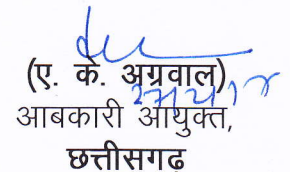 (ए. के. अग्रवाल)
आबकारी आयुक्त,
छत्तीसगढ़